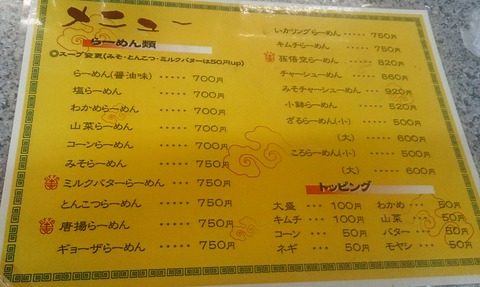 メニュー
らーめん類
◎スープ変更(みそ・とんこつ・ミルクバターは50円up)
らーめん(醤油味) ・・・・・ 700円
塩らーめん ・・・・・ 700円
わかめらーめん ・・・・・ 700円
山菜らーめん ・・・・・ 700円
コーンらーめん ・・・・・ 700円
みそらーめん ・・・・・ 750円
ミルクバターらーめん ・・・ 750円
とんこつらーめん ・・・・・ 750円
唐揚らーめん ・・・・・ 750円
ギョーザらーめん ・・・・・ 750円
いかリングらーめん ・・・・・ 750円
キムチらーめん ・・・・・ 750円
孫悟空らーめん ・・・・・ 820円
チャーシューメン ・・・・・ 860円
みそチャーシューメン ・・・・・ 920円
小鉢らーめん ・・・・・ 520円
ざるらーめん(小) ・・・・・ 500円
(大) ・・・・・ 600円
ころらーめん(小) ・・・・・ 500円
(大) ・・・・・ 600円
トッピング
大盛 ・・・ 100円 わかめ ・・ 50円
キムチ ・・・ 100円 山菜 ・・・ 50円
コーン ・・・ 50円 バター ・・ 50円
ネギ ・・・ 50円 モヤシ ・・ 50円